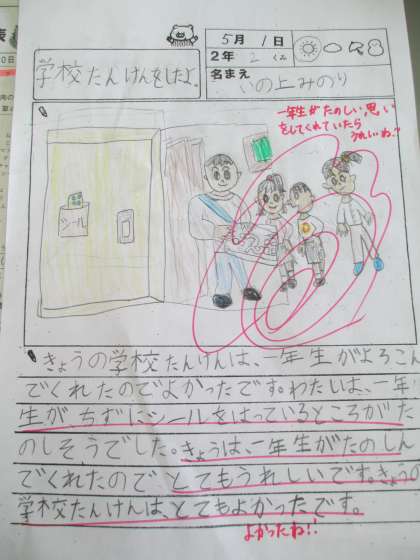 5月1日
2年2くみ
学校たんけんをしたよ。
名まえ
いの上みのり
一年生がたのしい思い
をしてくれていたら
うれしいね!!
シール
きょうの学校たんけんは、一年生がよろこん
でくれたのでよかったです。わたしは、一年
生が、ちずにシールをはっているところがた
のしそうでした。きょうは、一年生がたのしん
でくれたので、とてもうれしいです。きょうの
学校たんけんは、とてもよかったです。
よかったね!!